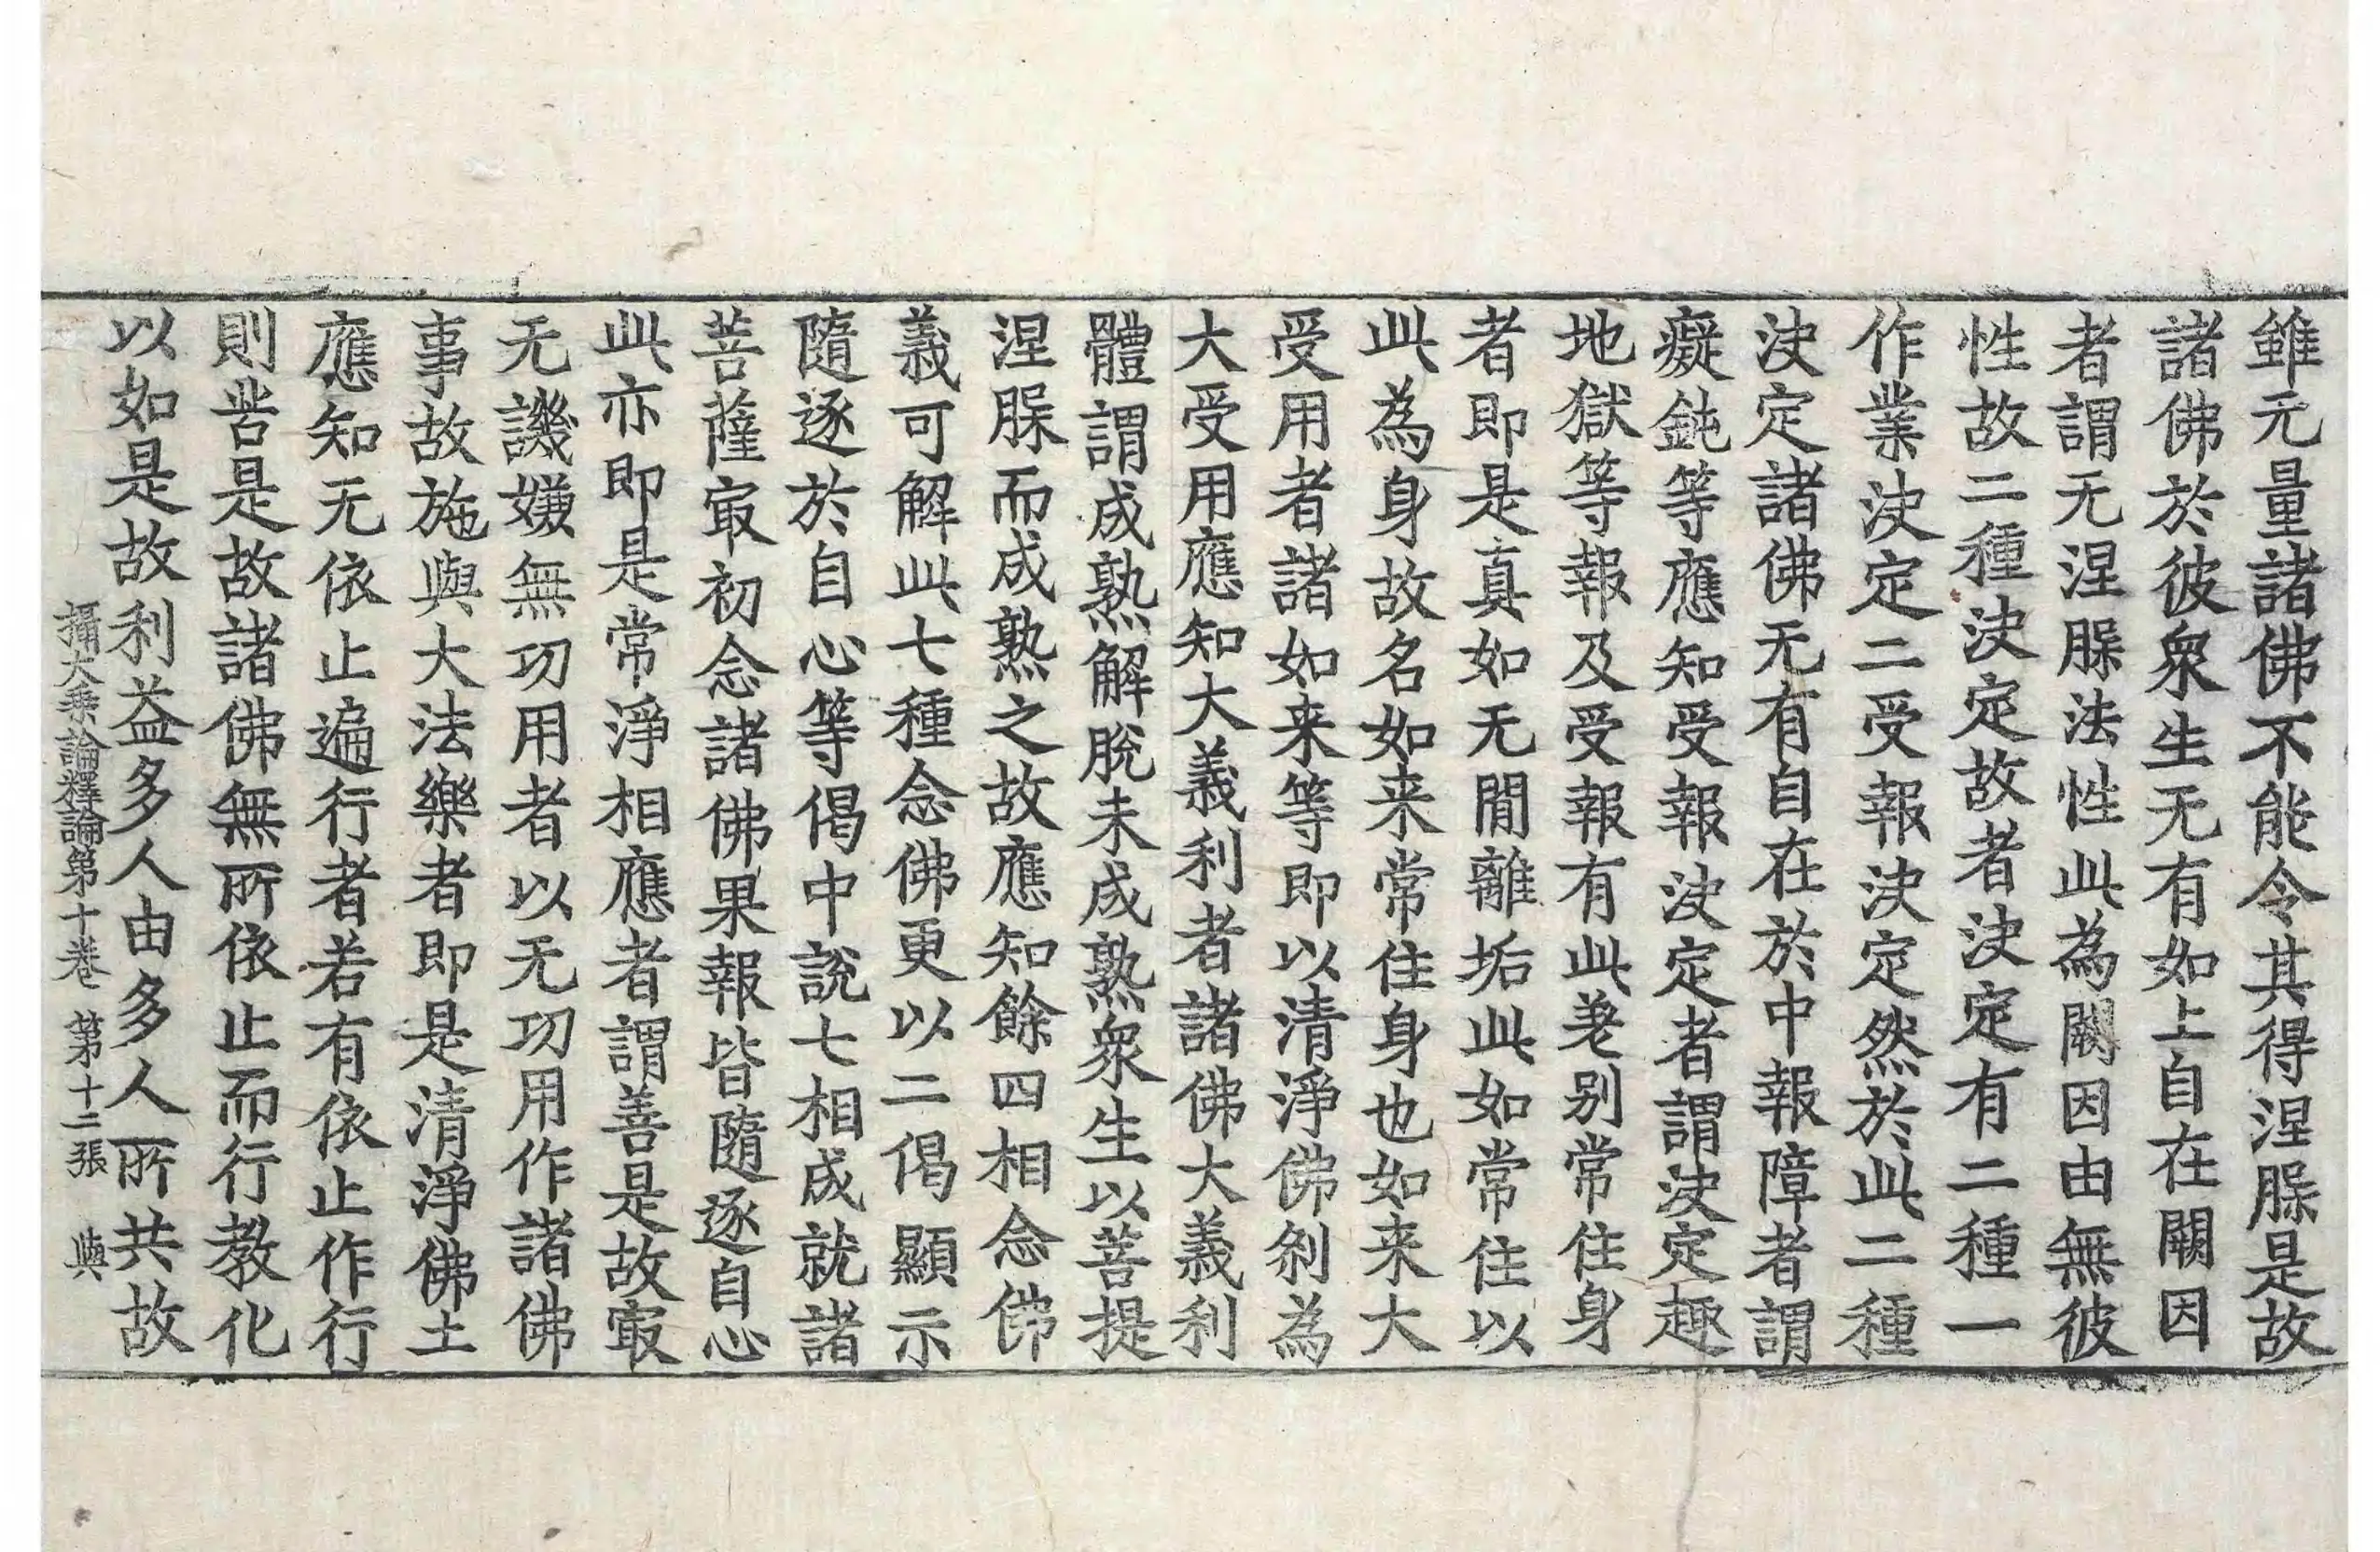 雖无量諸佛不能令其得涅脲是故
諸佛於彼衆生无有如上自在闕因
者謂无涅脲法性此為闕因由無彼
性故二種決定故者決定有二種一
作業決定二受報決定然於此二種
決定諸佛无有自在於中報障者謂
癡鈍等應知受報決定者謂決定趣
地獄等報及受報有此差別常住身
者即是真如无閒離垢此如常住以
此為身故名如来常住身也如来大
受用者諸如来等即以清淨佛刹為
大受用應知大義利者諸佛大義利
體謂成熟解脫未成熟衆生以菩提
涅脲而成熟之故應知餘四相念佛
義可解此七種念佛更以二偈顯示
隨逐於自心等偈中說七相成就諸
菩薩冣初念諸佛果報皆隨逐自心
此亦即是常淨相應者謂善是故冣
无譏嫌無功用者以无功用作諸佛
事故施與大法樂者即是清淨佛土
應知无依止遍行者若有依止作行
則苦是故諸佛無所依止而行教化
以如是故利益多人由多人所共故
攝大乘論釋論第十卷 第十二張 與